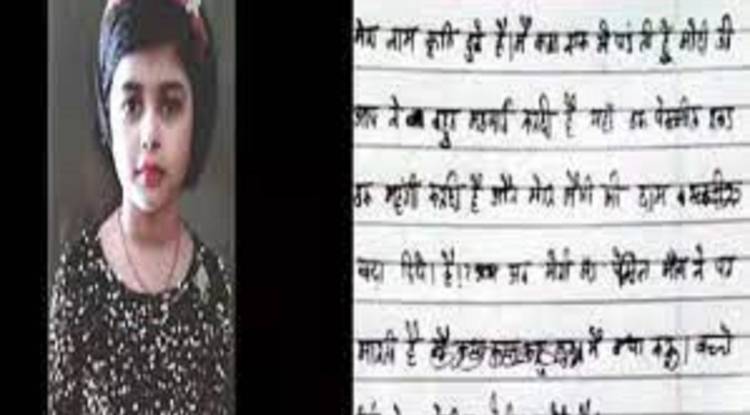 मेरा नाम कृति दुबे है। मैं कक्षा एक में पढती हूं मोदी जी
आप ने बहुत महगाई करदी है यहाँ तक पेन्सील रबड
तक महंगी करदी है और मेरी मैगी की दाम
बढा दिये। है। अब मेरी माँ पेंसिल माँगने पर
मारती है मैं क्या करू। बच्चे